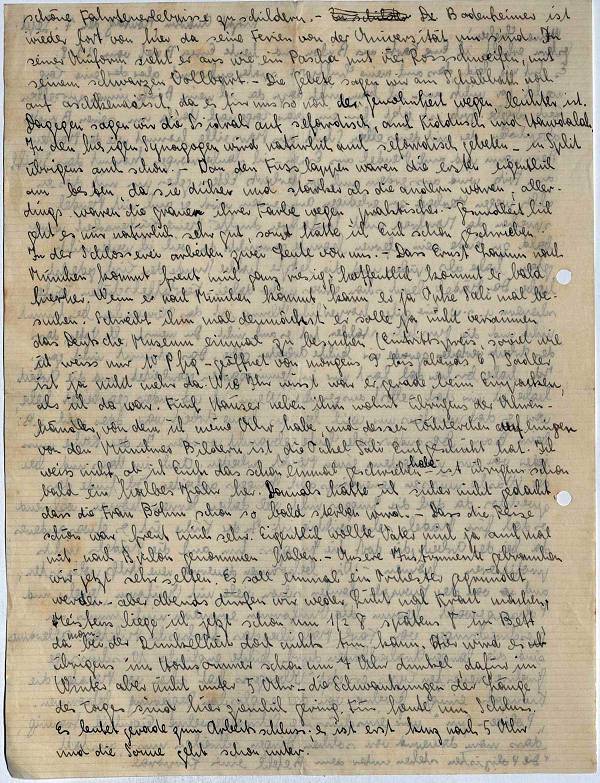 schöne Fahrtenerlebnisse zu schildern. – De Badenheimer ist
wieder fort von hier da seine Ferien von der Universität um sind. In
seiner Uniform sieht er aus wie ein Pascha mit vier Rossschweifen, mit
seinem schwarzen Vollbart. – Die Gebete sagen wir am Schabbath noch
auf aschkenasisch, da es für uns so noch der Gewohnheit wegen leichter ist.
Dagegen sagen wir die auf sefardisch, auch Kiddusch und Hawdalah.
In den hiesigen Synagogen wird natürlich auch sefardisch gebeten – in Split
übrigens auch schon. – Von den Fusslappen waren die ersten eigentlich
am besten, da sie dicker und stärker als die andern waren, aller-
dings waren die grauen ihrer Farbe wegen praktischer. – Gesundheitlich
geht es mir natürlich sehr gut sonst hätte ich Euch schon geschrieben.
In der Schlosserei arbeiten zwei Leute von uns. – Dass Ernst nach
München kommt freut mich ganz riesig, hoffentlich kommt er bald
hierher. Wenn er nach München kommt, kann er ja Onkel Sali mal be-
suchen. Schreibt ihm mal demnächst er solle ja nicht versäumen
das Deutsche Museum einmal zu besuchen (Eintrittspreis, soviel wie
ich weiss nur 10 Pfg – geöffnet von morgens 9 bis abends 6) Sadler
ist ja nicht mehr da. Wie Ihr wisst war er gerade beim Einpacken,
als ich da war. Fünf Häuser neben ihm wohnt übrigens der Uhren-
händler, von dem ich meine Uhr habe, und dessen Töchterchen auf einigen
von den Münchner Bildern ist, die Onkel Sali Euch geschickt hat. Ich
weiss nicht, ob ich Euch das schon einmal geschrieben habe – ist übrigens schon
bald ein halbes Jahr her. Damals hätte ich sicher nicht gedacht
dass die Frau Böhm schon so bald sterben wird. – Dass die Reise
schön war, freut mich sehr. Eigentlich wollte Vater mich ja auch mal
mit nach Brilon genommen haben. Unsere Instrumente gebrauchen
wir jetzt sehr selten. Es soll einmal ein Orchester gegründet
werden – aber abends dürfen wir weder Licht noch Krach machen,
Meistens liege ich jetzt schon um 1/2 7 spätens 7 im Bett
da man bei der Dunkelheit doch nichts tun kann. Hier wird es ja
übrigens im Hochsommer schon um 7 Uhr dunkel dafür im
Winter aber nicht unter 5 Uhr – die Schwankungen der Länge
des Tages sind hier ziemlich gering. Für heute nun Schluss
Es leutet gerade zum Arbeitsschluss. – es ist erst kurz nach 5 Uhr
und die Sonne geht schon unter.